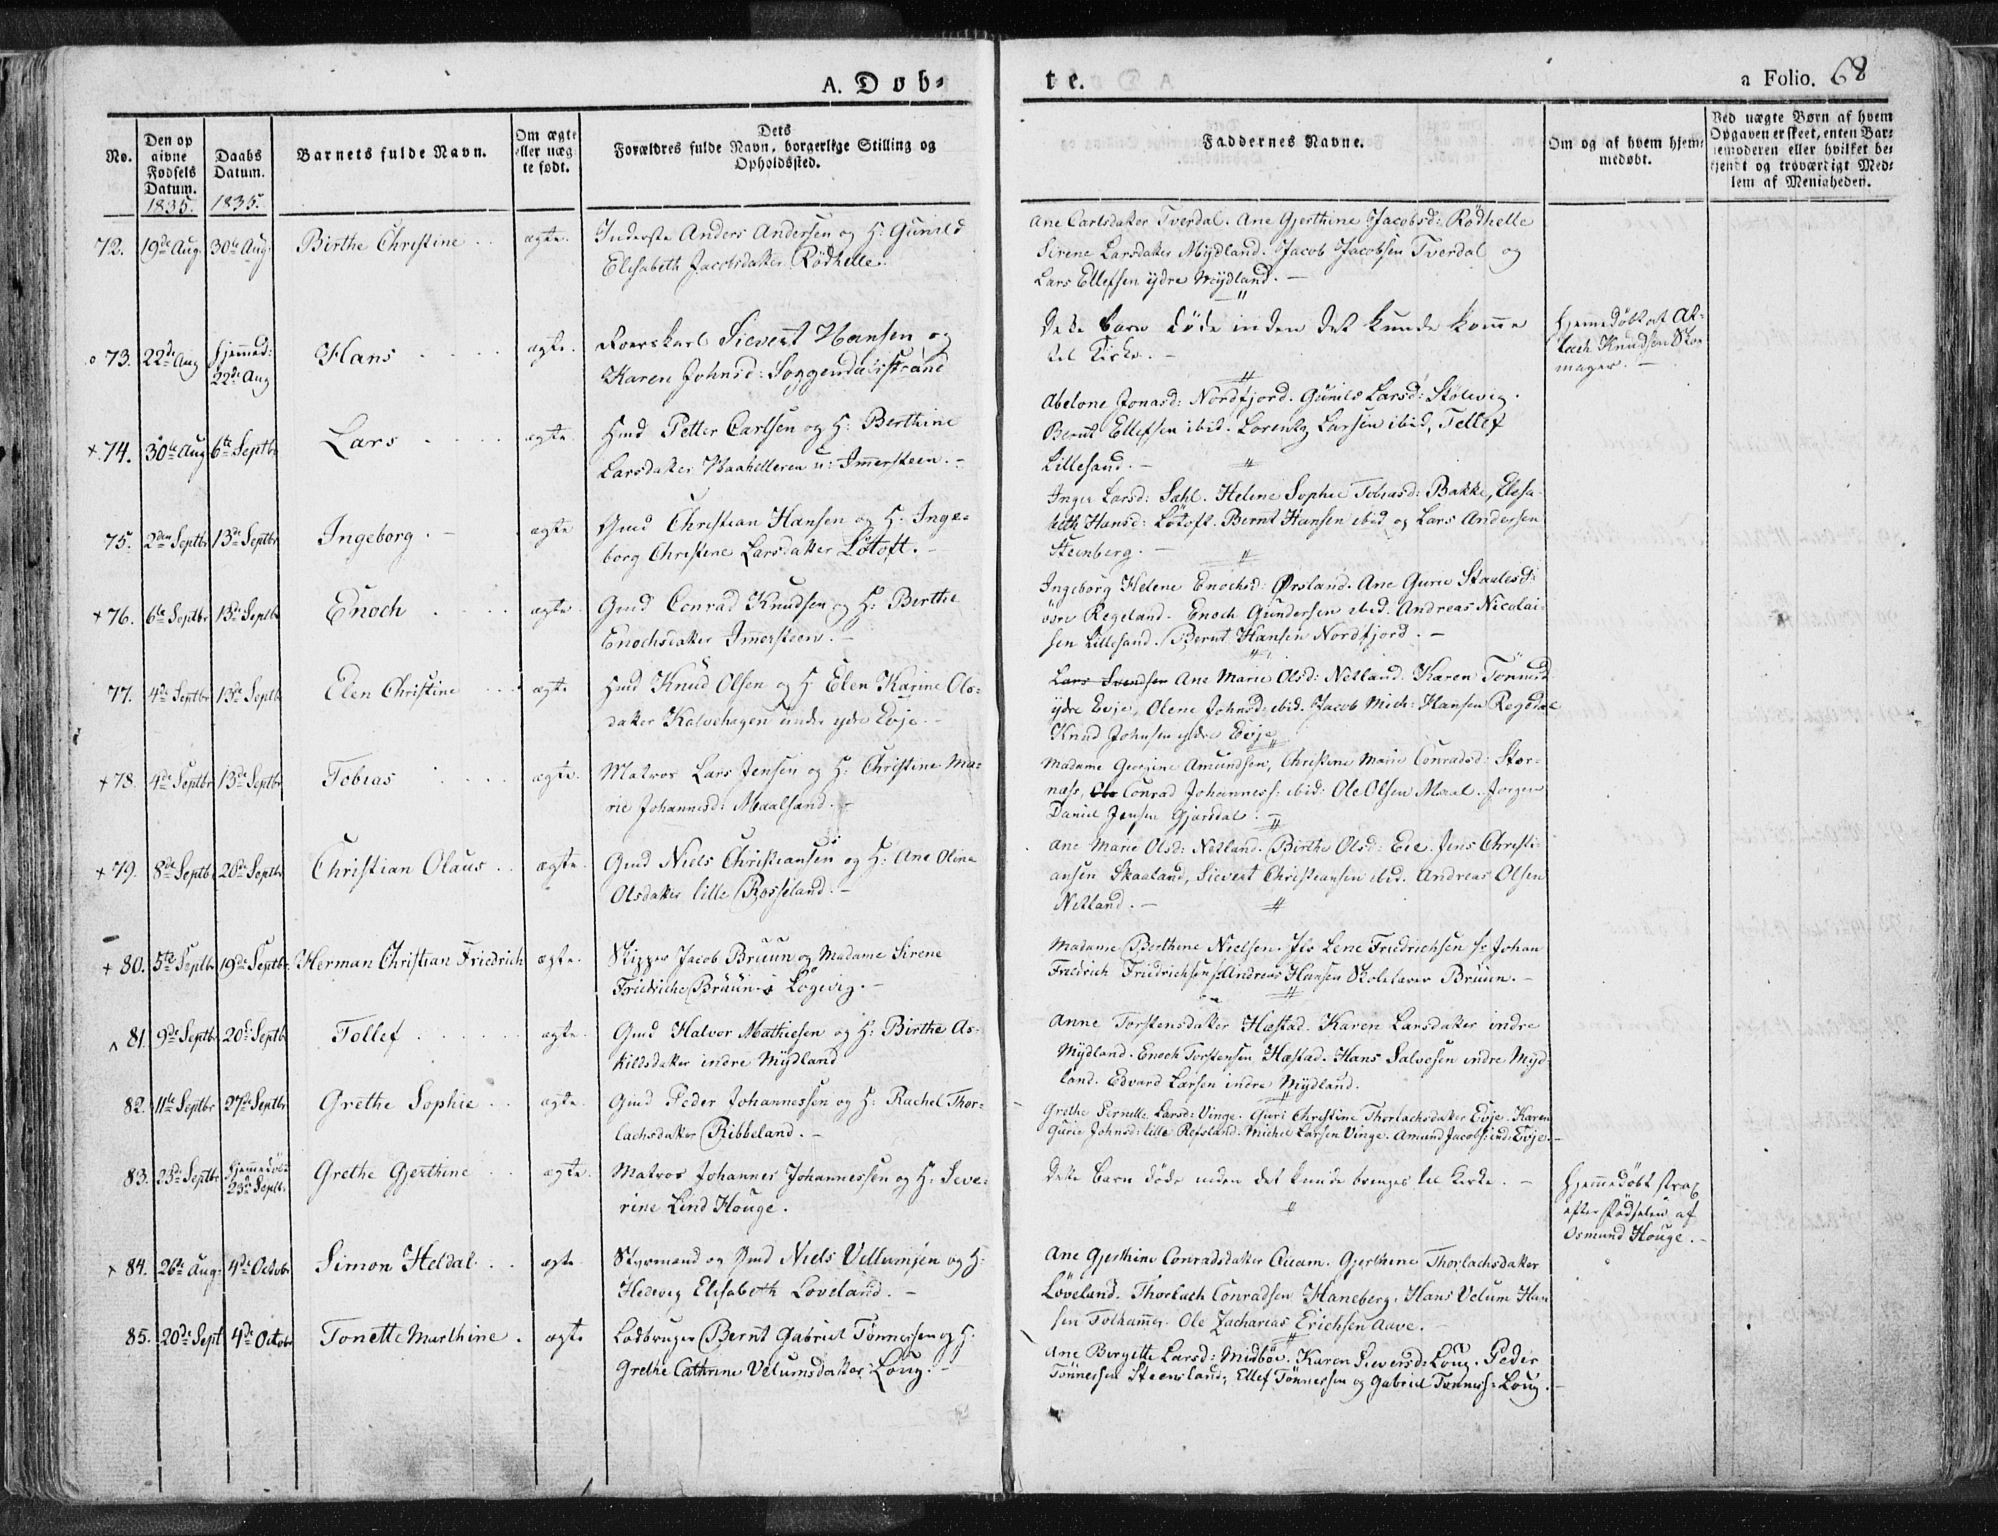 A. Døb-
te.
a Folio. 68
No.
Den op
givne
Fødsels
Datum.
1835.
Daabs
Datum.
1835.
Barnets fulde Navn.
Om ægte
eller uæg
te født.
Dets
Forældres fulde Navn, borgerlige Stilling og
Opholdssted.
Faddernes Navne.
Om og af hvem hjem-
medøbt.
Ved uægte Børn af hvem
Opgaven er skeet, enten Bar-
nemoderen eller hvilket be-
kjendt og troværdigt Med-
lem af Menigheden.
72. 19de Aug. 30te Aug. Birthe Christine ægte. Inderste Anders Andersen og H: Gunild
Elisabeth Jacobsdatter Rödhelle.
Ane Carlsdatter Tverdal. Ane Gjerthine Jacobsd: Rödhelle
Sirene Larsdatter Mydland. Jacob Jacobsen Tverdal og
Lars Ellefsen ydre Mydland. -
73. 22de Aug hjemmed: 22de Aug Hans ægte. Roerskarl Sievert Hansen og
Karen Johnsd: Soggendalsstrand
Dette barn döde inden det kunde komme
til Kirke. -
hjemmedöbt at
Knudsen Skoe
mager. -
+ 74. 30te Aug 6te Septbr Lars ægte. Gmd Petter Carlsen og H: Berthine
Larsdatter Haahelleren u: Immersteen. -
Abelone Jonasd: Nordfjord. Gunild Larsd: Stölevig.
Bernt Ellefsen ibid. Lorentz Larsen ibid, Tellef
Lillesand. -
75. 2den Septbr 13de Septbr Ingeborg. - ægte Gmd Christian Hansen og H. Inge-
borg Christine Larsdatter Lötoft. -
Inger Larsd: Sahl. Helene Sophie Tobiasd: Bakke, Elisa-
beth Hansd: Lötoft. Bernt Hansen ibid og Lars Andersen
Steinberg. -
+ 76. 6te Septbr 13de Septbr Enoch ægte. Gmd Conrad Knudsen og H: Berthe
Enochsdatter Immersteen. -
Ingeborg Helene Enochsd: Ørsland. Ane Gurie Staalesd:
övre Regeland. Enoch Gundersen ibid. Andreas Nicolai-
sen Lillesand. Bernt Hansen Nordfjord. -
77. 4de Septbr 13de Septbr Elen Christine ægte Hmd Knud Olsen og H Elen Karine Ols-
datter Kalvehagen under ydre Evje. -
Lars Svendsen Ane Marie Olsd: Netland. Karen Tönnesd
ydre Evje, Olene Johnsd: ibid. Jacob Mich: Hansen Regedal
Knud Johnsen ydre Evje
+ 78. 4de Septbr 13de Septbr Tobias ægte. Matros Lars Jensen og H: Christine Ma-
rie Johannesd: Maalsand. -
Madame Georine Amundsen, Christine Marie Conradsd: Stor-
næss, Ole Conrad Johanness: ibid: Ole Olsen Maal. Jörgen
Daniel Jensen Gjarsdal.
+ 79. 8de Septbr 20de Septbr Christian Olaus ægte. Gmd Niels Christiansen og H: Ane Oline
Olsdatter lille Rosseland. -
Ane Marie Olsd: Netland. Birthe Olsd: Eie. Jens Christi-
ansen Skaaland, Sievert Christiansen ibid. Andreas Olsen
Netland. -
+ 80. 5te Septbr 19de Septbr. Herman Christian Friedrich ægte. Skipper Jacob Bruun og Madame Sirene
Friedriche Bruun Logevig. -
Madame Berthine Nielsen. Lene Friedrichsen Hr Johan
Friedrich Friedrichsen, Andreas Hansen Skolelærer Bruun. -
81. 9de Septbr 20de Septbr Tollef ægte. Gmd Halvor Mathiesen og H: Birthe As-
kildsdatter indre Mydland
Anne Torstensdatter Hæstad. Karen Larsdatter indre
Mydland. Enoch Torstensen Hæstad. Hans Salvesen indre Myd
land. Edvard Larsen indre Mydland.
82. 11te Septbr 27de Septbr Grethe Sophie ægte. Gmd Peder Johannessen og H: Rachel Thor-
lachsdatter Ribbeland. -
Grethe Pernille Larsd: Vinge. Guri Christine Thorlachsdatter Evje. Karen
Gurie Johnsd: lille Refsland. Michel Larsen Vinge. Amund Jacobs: ind: Evje. -
83. 23de Septbr hjemmedöbt 23de Septbr. Grethe Gjerthine ægte. Matros Johannes Johannessen og H. Seve-
rine Lind Houge.
Dette Barn döde inden det kunde bringes til Kirke. -
Hjemmedöbt strax
efter Födselen af
Osmund Houge. -
+ 84. 26te Aug: 4de Octobr Simon Heldal. ægte Styrmand og Gmd Niels Vellumsen og H:
Hedevig Elisabeth Loveland. -
Ane Gjerthine Conradsdatter Qvam. Gjerthine Thorlachsdatter
Löveland. Thorlach Conradsen Haneberg. Hans Velum Han
sen Tolhammer. Ole Zacharias Erichsen Aave. -
85. 20de Sept 4de Octobr Tonette Marthine. ægte Lodbruger Bernt Gabriel Tönnessen og H.
Grethe Cathrine Velumsdatter Loug. -
Ane Birgitte Larsd: Midböe. Karen Sieversd: Loug. Peder
Tönnessen Steensland, Ellef Tönnessen og Gabriel Tönness: Loug. -